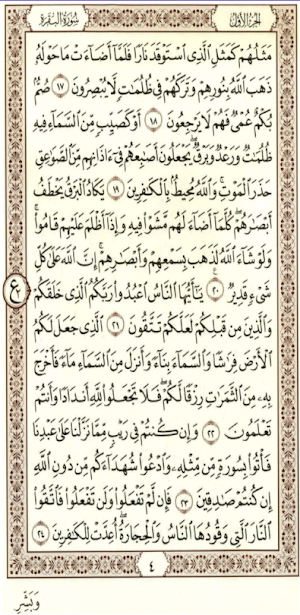 الجزء الأول
سورة البقرة
مَثَلُهُمْ كَمَثَلِ الَّذِي اسْتَوْقَدَ نَارًا فَلَمَّا أَضَاءَتْ مَا حَوْلَهُ
ذَهَبَ اللَّهُ بِنُورِهِمْ وَتَرَكَهُمْ فِي ظُلُمَاتٍ لَّا يُبْصِرُونَ ١٧ صُمٌّ
بُكْمٌ عُمْيٌ فَهُمْ لَا يَرْجِعُونَ ١٨ أَوْ كَصَيِّبٍ مِّنَ السَّمَاءِ فِيهِ
ظُلُمَاتٌ وَرَعْدٌ وَبَرْقٌ يَجْعَلُونَ أَصَابِعَهُمْ فِي آذَانِهِم مِّنَ الصَّوَاعِقِ
حَذَرَ الْمَوْتِ وَاللَّهُ مُحِيطٌ بِالْكَافِرِينَ ١٩ يَكَادُ الْبَرْقُ يَخْطَفُ
أَبْصَارَهُمْ كُلَّمَا أَضَاءَ لَهُم مَّشَوْا فِيهِ وَإِذَا أَظْلَمَ عَلَيْهِمْ قَامُوا
وَلَوْ شَاءَ اللَّهُ لَذَهَبَ بِسَمْعِهِمْ وَأَبْصَارِهِمْ إِنَّ اللَّهَ عَلَىٰ كُلِّ
شَيْءٍ قَدِيرٌ ٢٠ يَا أَيُّهَا النَّاسُ اعْبُدُوا رَبَّكُمُ الَّذِي خَلَقَكُمْ
وَالَّذِينَ مِن قَبْلِكُمْ لَعَلَّكُمْ تَتَّقُونَ ٢١ الَّذِي جَعَلَ لَكُمُ
الْأَرْضَ فِرَاشًا وَالسَّمَاءَ بِنَاءً وَأَنزَلَ مِنَ السَّمَاءِ مَاءً فَأَخْرَجَ
بِهِ مِنَ الثَّمَرَاتِ رِزْقًا لَّكُمْ فَلَا تَجْعَلُوا لِلَّهِ أَندَادًا وَأَنتُمْ
تَعْلَمُونَ ٢٢ وَإِن كُنتُمْ فِي رَيْبٍ مِّمَّا نَزَّلْنَا عَلَىٰ عَبْدِنَا
فَأْتُوا بِسُورَةٍ مِّن مِّثْلِهِ وَادْعُوا شُهَدَاءَكُم مِّن دُونِ اللَّهِ
إِن كُنتُمْ صَادِقِينَ ٢٣ فَإِن لَّمْ تَفْعَلُوا وَلَن تَفْعَلُوا فَاتَّقُوا
النَّارَ الَّتِي وَقُودُهَا النَّاسُ وَالْحِجَارَةُ أُعِدَّتْ لِلْكَافِرِينَ ٢٤
٤
وَبَشِّرِ